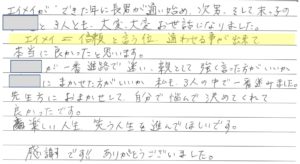 エイメイができた年に長男が通い始め、次男、そして末っ子の
と3人とも、大変大変お世話になりました。
エイメイ=信頼と言う位 通わせる事が出来て
本当に良かったと思います。
が一番進路で迷い、親として強く言った方がいいか
にまかせた方がいいか 私も3人の中で一番悩みました。
先生方におまかせして 自分で悩んで決めてくれて
良かったです。
楽しい人生 笑う人生を進んでほしいです。
感謝です!! ありがとうございました。